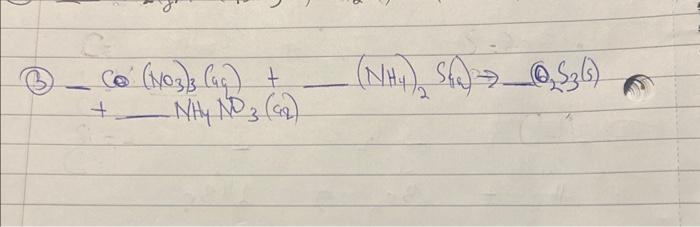 ③ _ Co (NO3)3 (aq) + __ (NH4)2 S(aq) → __ Co2S3(s)
+ __ NH4 NO3 (aq)